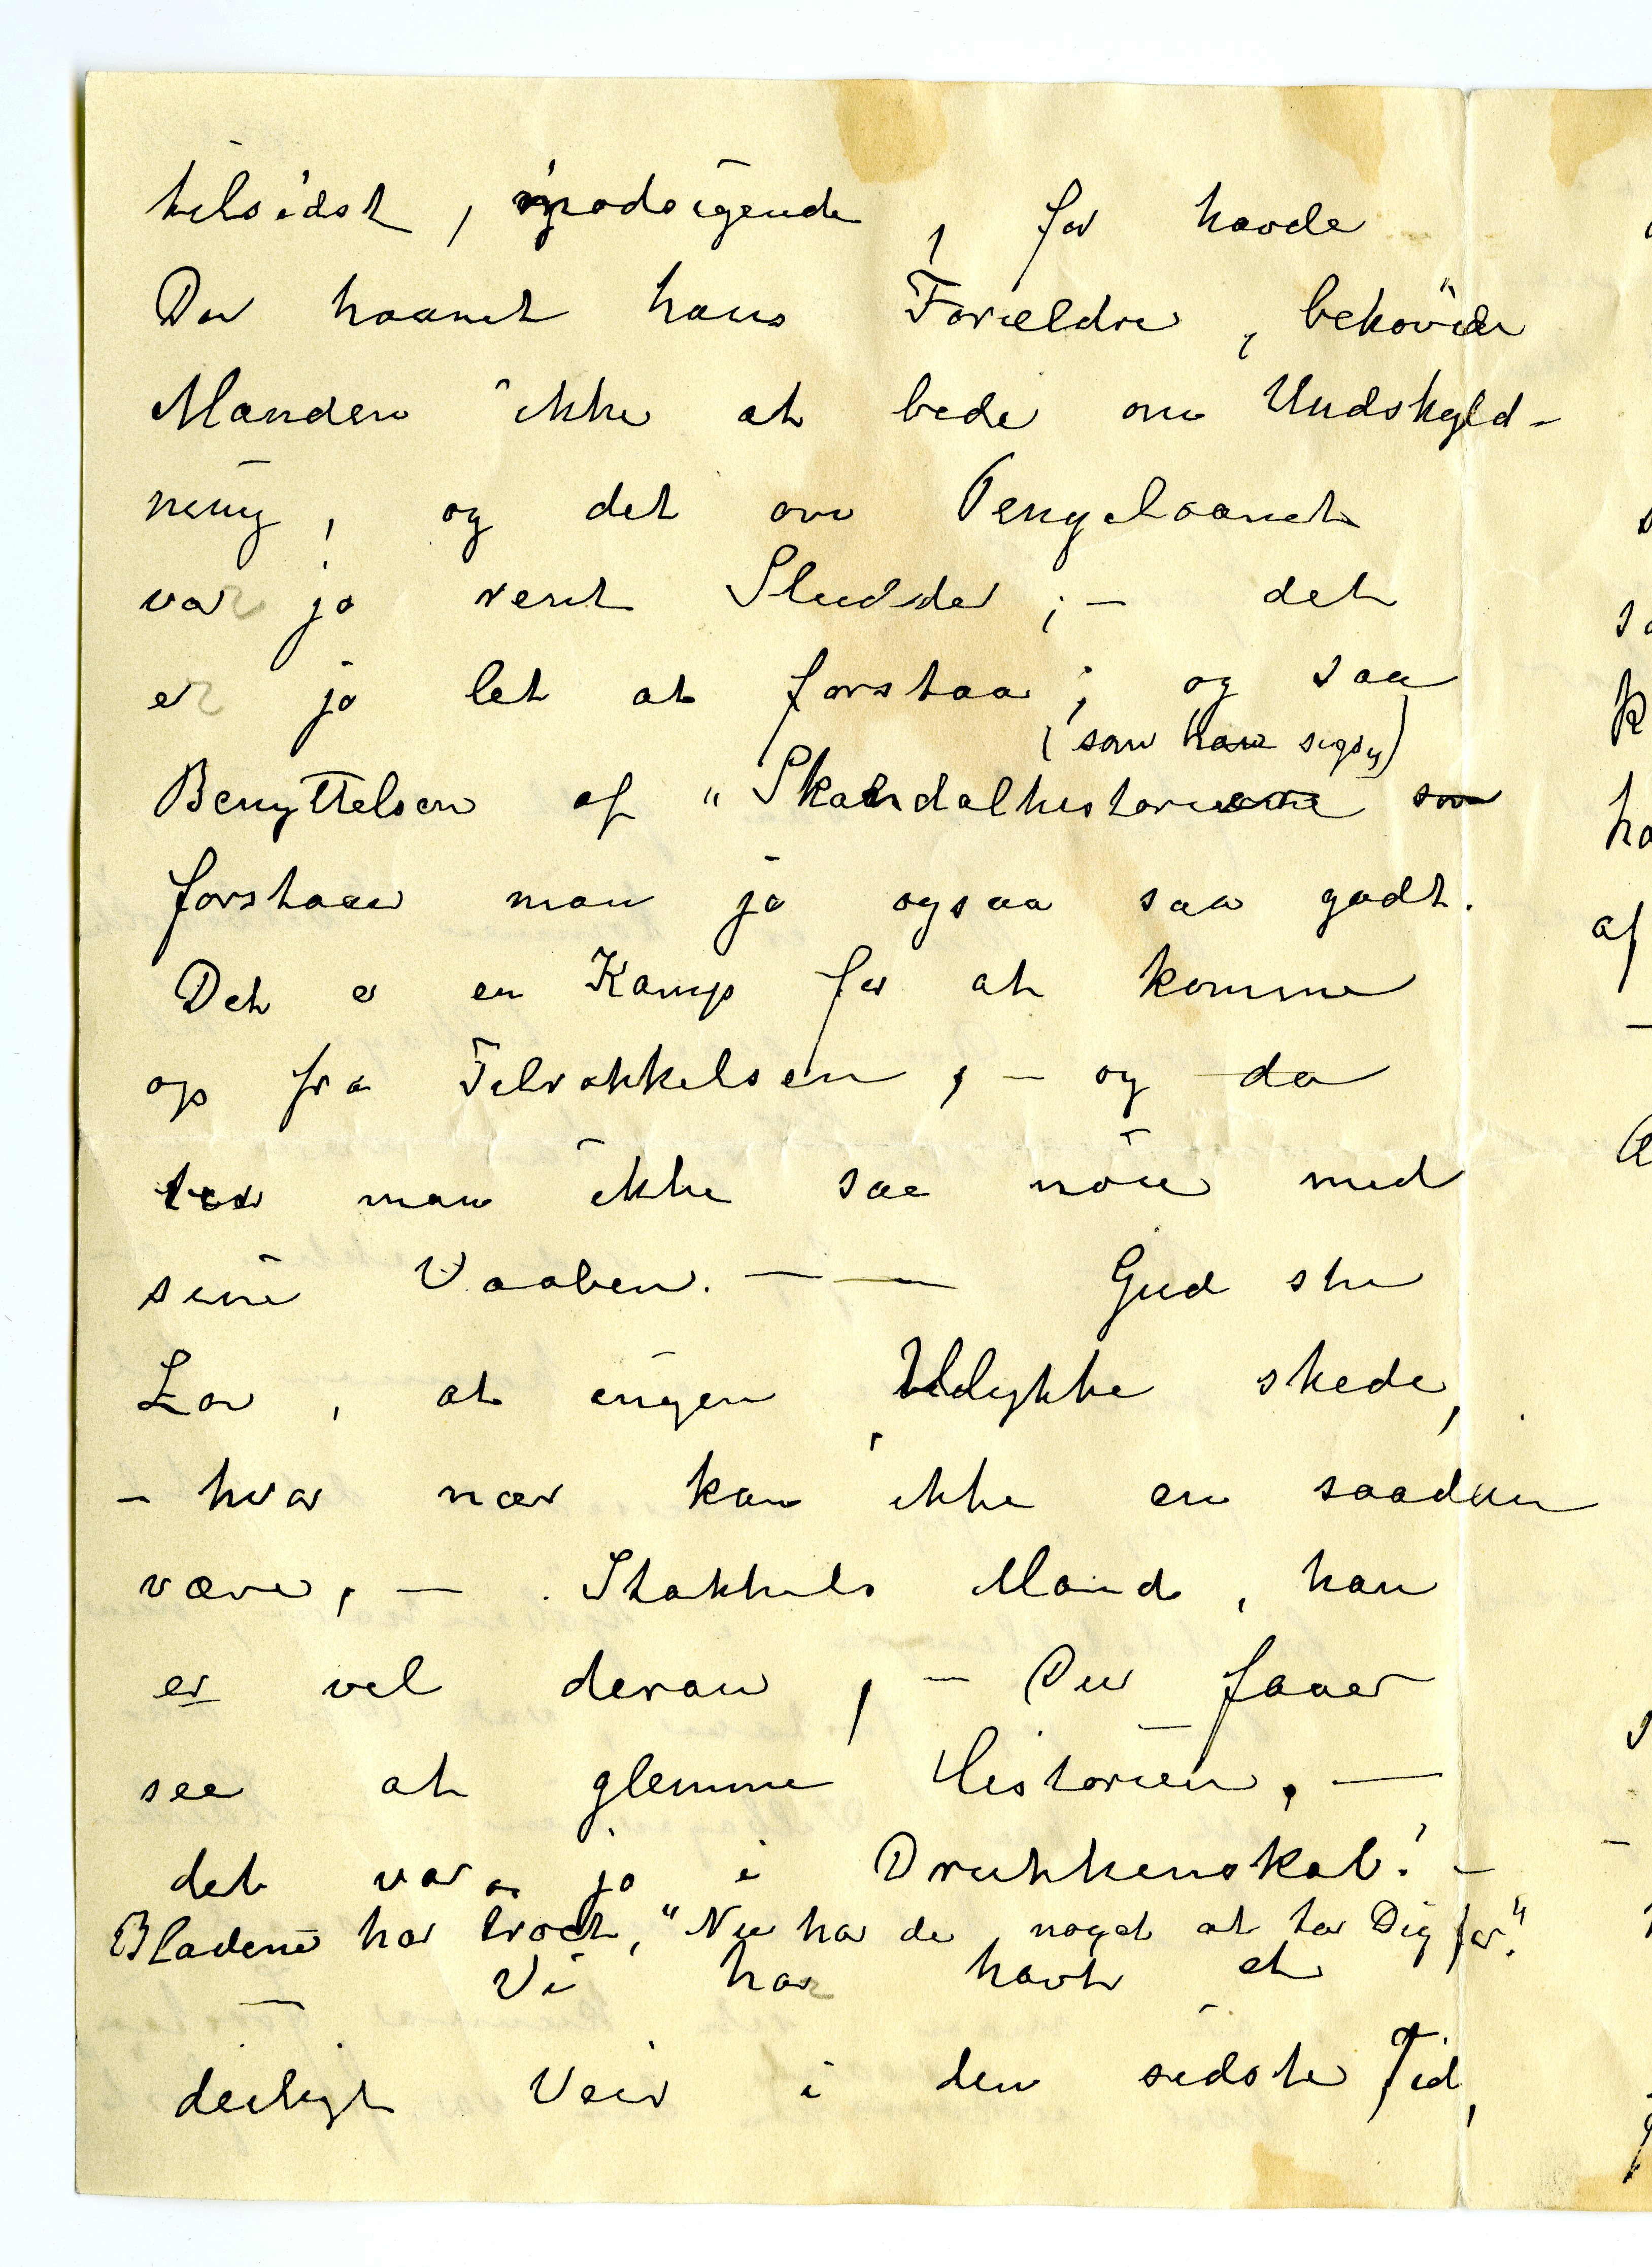 tilsidst, modsigende, for havde
Du haanet hans Forældre, behøver
Manden ikke at bede om Undskyld-
ning, og det om Pengelaanet
var jo rent Sludder; - det
er jo let at forstaa; og saa
(som han siges)
Benyttelsen af "Skandalhistorierne som
forstaar man jo ogsaa saa godt.
Det er en Kamp for at komme
op fra Tilrakkelsen, - og da
man ikke saa nøie med
sine Vaaben. — — Gud ske
Lov, at ingen Ulykke skede,
- hvor nær kan ikke en saadan
være, - . Stakkels Mand, han
er vel deran, - Du faaer
see at glemme Historien. —
det var jo i Drukkenskab! -
Bladene har troet, "Nu har de noget at ta Dig for."
Vi har havt et
deiligt Veir i den sidste Tid,